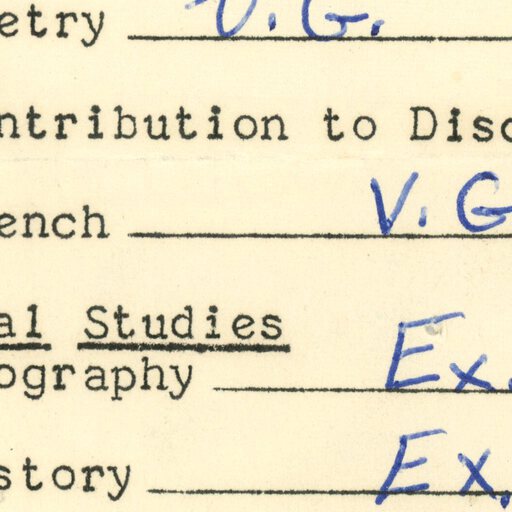 etry V.G.
ntribution to Disc
ench V.G
al Studies
ography Ex.
story Ex.